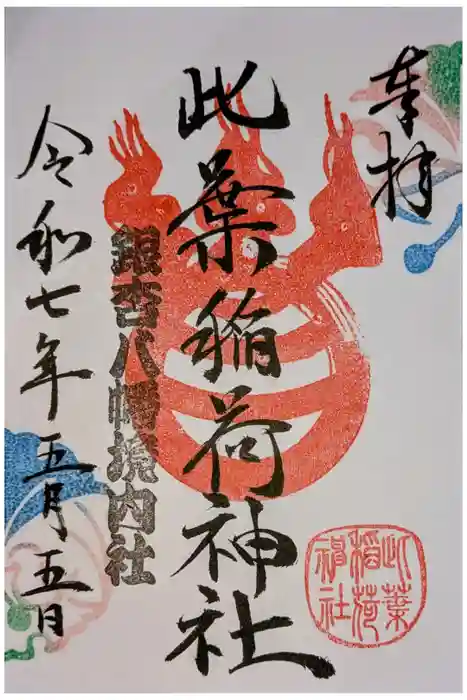 奉拝
此葉稲荷神社
銀杏八幡境内社
令和七年五月五日
此葉稲荷神社